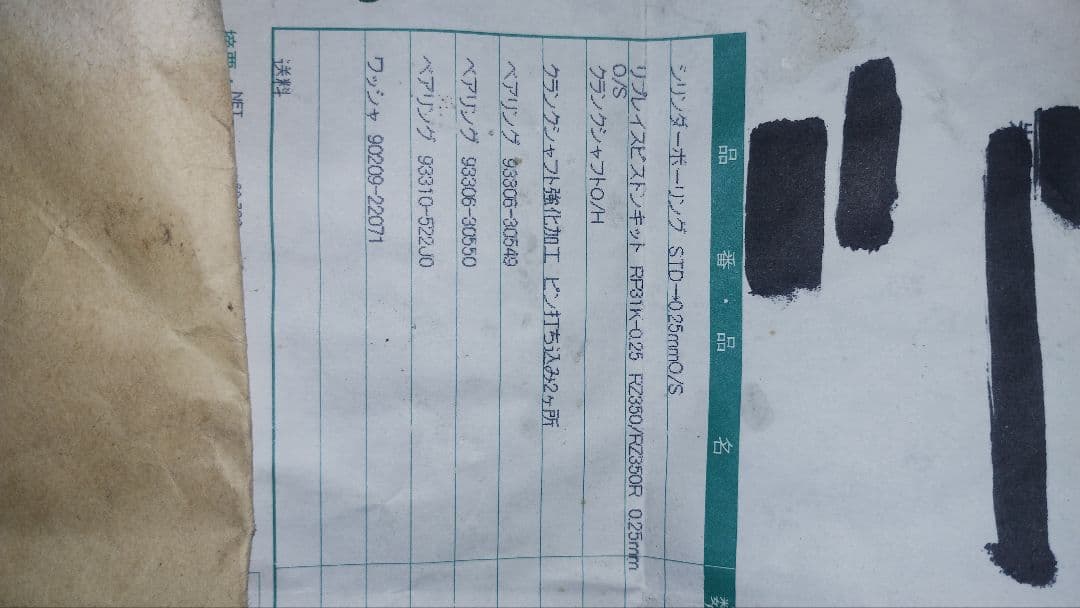 品番・品名
数
シリンダーボーリング STD→0.25mmO/S
リプレイスピストンキット RP31K-0.25 RZ350/RZ350R 0.25mm
O/S
クランクシャフトO/H
クランクシャフト強化加工 ピン打ち込み2ヶ所
ベアリング 93306-30549
ベアリング 93306-30550
ベアリング 93310-522J0
ワッシャ 90209-22071
送料